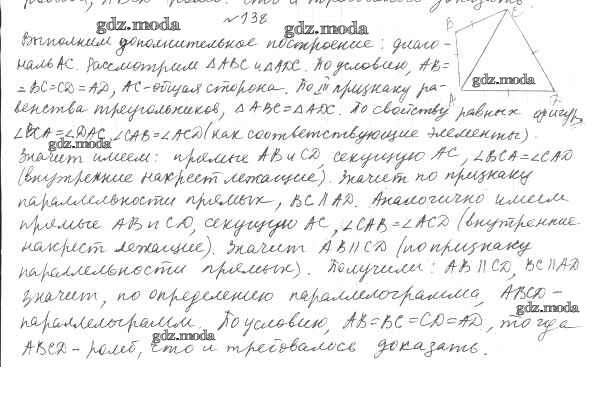 ABCD ромб. Что и требовалось доказать.
№138
gdz.moda gdz.moda
Выполним дополнительное построение: диаго-
наль AC. Рассмотрим ΔABC и ΔADC. По условию, AB=
=BC=CD=AD, AC-общая сторона. По III признаку ра-
венства треугольников, ΔABC=ΔADC. По свойству равных фигур,
∠BCA=∠DAC, ∠CAB=∠ACD (как соответствующие элементы).
gdz.moda
Значит имеем: прямые AB и CD, секущую AC, ∠BCA=∠CAD
(внутренние накрест лежащие). Значит по признаку
параллельности прямых, BC||AD. Аналогично имеем
прямые AB и CD, секущую AC, ∠CAB=∠ACD (внутренние
накрест лежащие). Значит AB||CD (по признаку
параллельности прямых). Получили: AB||CD, BC||AD
Значит, по определению параллелограмма, ABCD-
параллелограмм. По условию, AB=BC=CD=AD, тогда
gdz.moda gdz.moda
ABCD-ромб, что и требовалось доказать.
B
C
gdz.moda
A